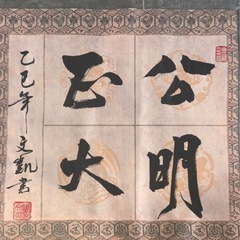 公明
正大
乙巳年 文凱書